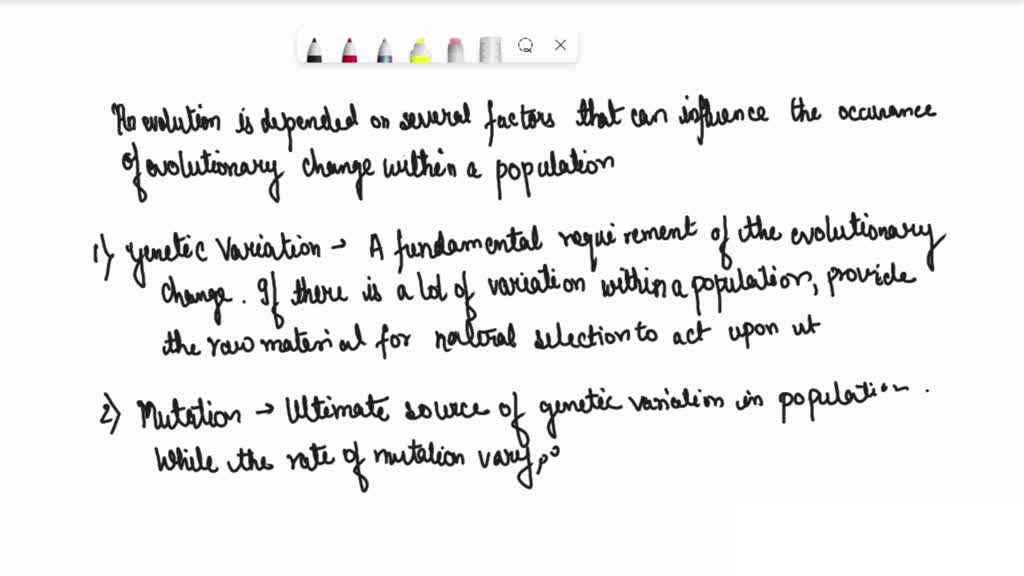 The evolution is depended on several factors that can influence the occurance
of evolutionary change within a population
1) Genetic Variation → A fundamental requirement of the evolutionary
change. If there is a lot of variation within a population, provide
the raw material for natural selection to act upon it
2) Mutation → Ultimate source of genetic variation in population.
While the rate of mutation vary,